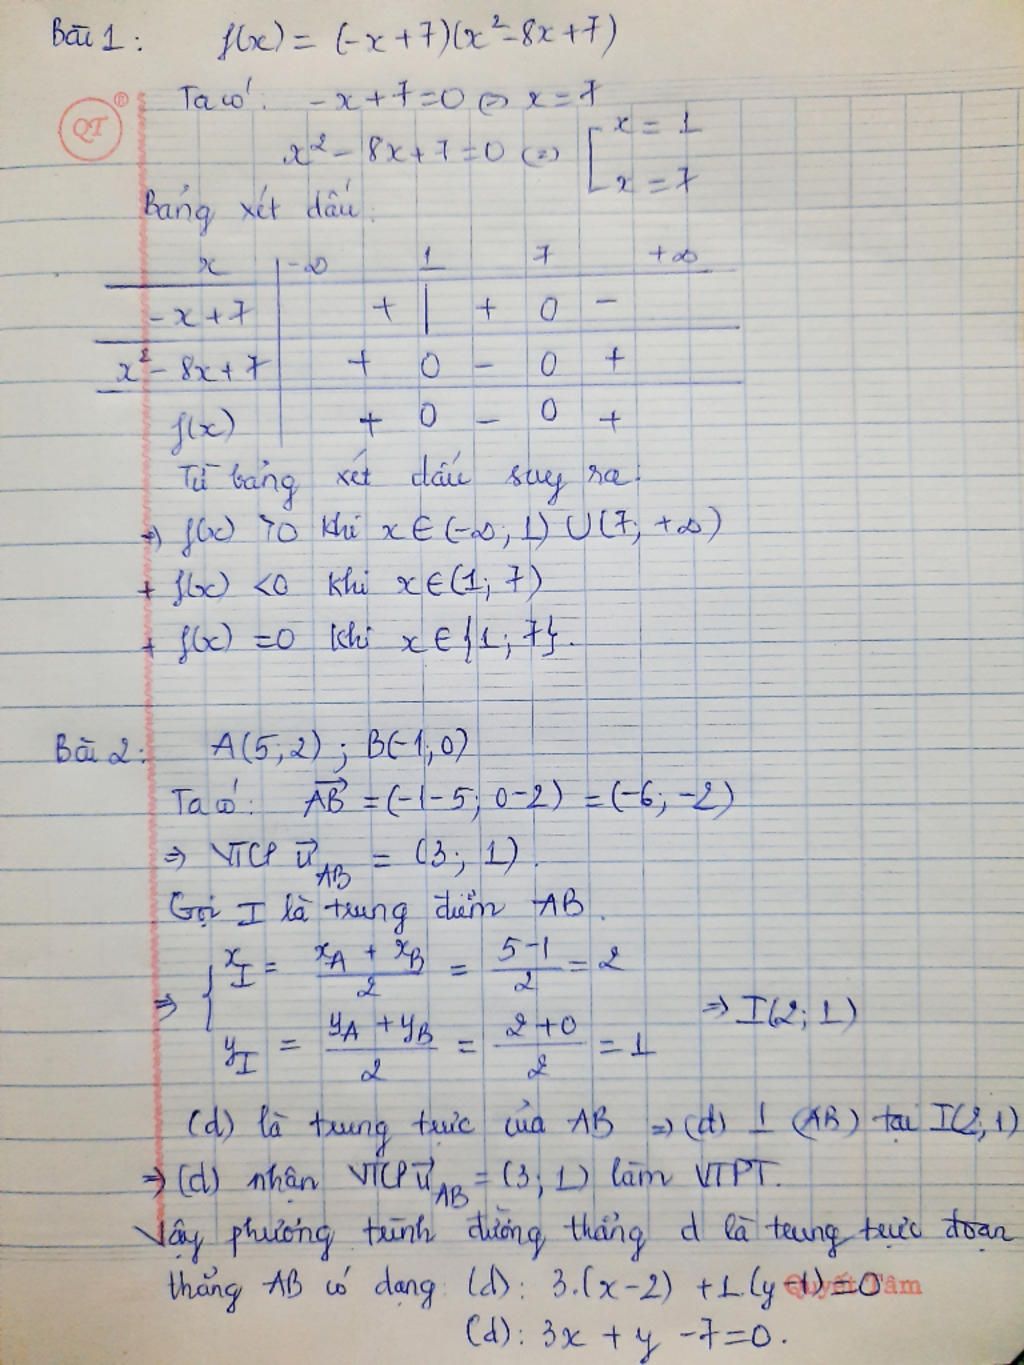 Bài 1: f(x) = (-x+7)(x²-8x+7)
Ta có: -x+7=0 ⇔ x=7
QT ®
x²-8x+7=0 ⇔ [x=1
x=7
Bảng xét dấu:
x | -∞ 1 7 +∞
-x+7 | + | + 0 -
x²-8x+7 | + 0 - 0 +
f(x) | + 0 - 0 +
Từ bảng xét dấu suy ra:
→ f(x) >0 khi x∈(-∞; 1)∪(7; +∞)
+ f(x) <0 khi x∈(1; 7)
+ f(x) =0 khi x∈{1; 7}.
Bài 2: A(5;2); B(-1;0)
Ta có: AB⃗ =(-1-5; 0-2) =(-6; -2)
⇒ VTCP u⃗_AB = (3; 1).
Gọi I là trung điểm AB.
⇒ { x_I = (x_A + x_B)/2 = (5-1)/2 = 2
y_I = (y_A + y_B)/2 = (2+0)/2 = 1 ⇒ I(2; 1)
(d) là trung trực của AB ⇒ (d) ⊥ (AB) tại I(2;1)
⇒ (d) nhận VTCP u⃗_AB = (3; 1) làm VTPT.
Vậy phương trình đường thẳng d là trung trực đoạn
thẳng AB có dạng: (d): 3.(x-2) +1.(y-1)=0
Quyết Tâm
(d): 3x + y -7=0.